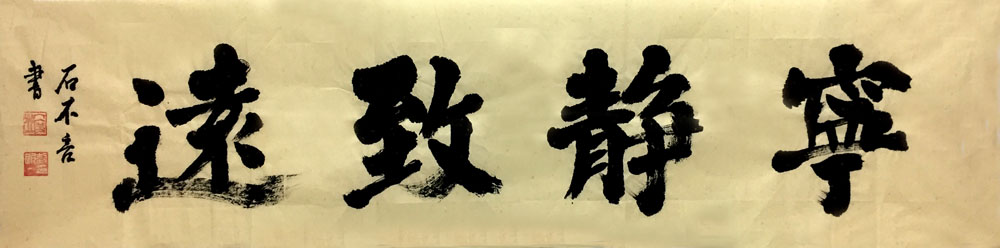 寧靜致遠
石不言
書